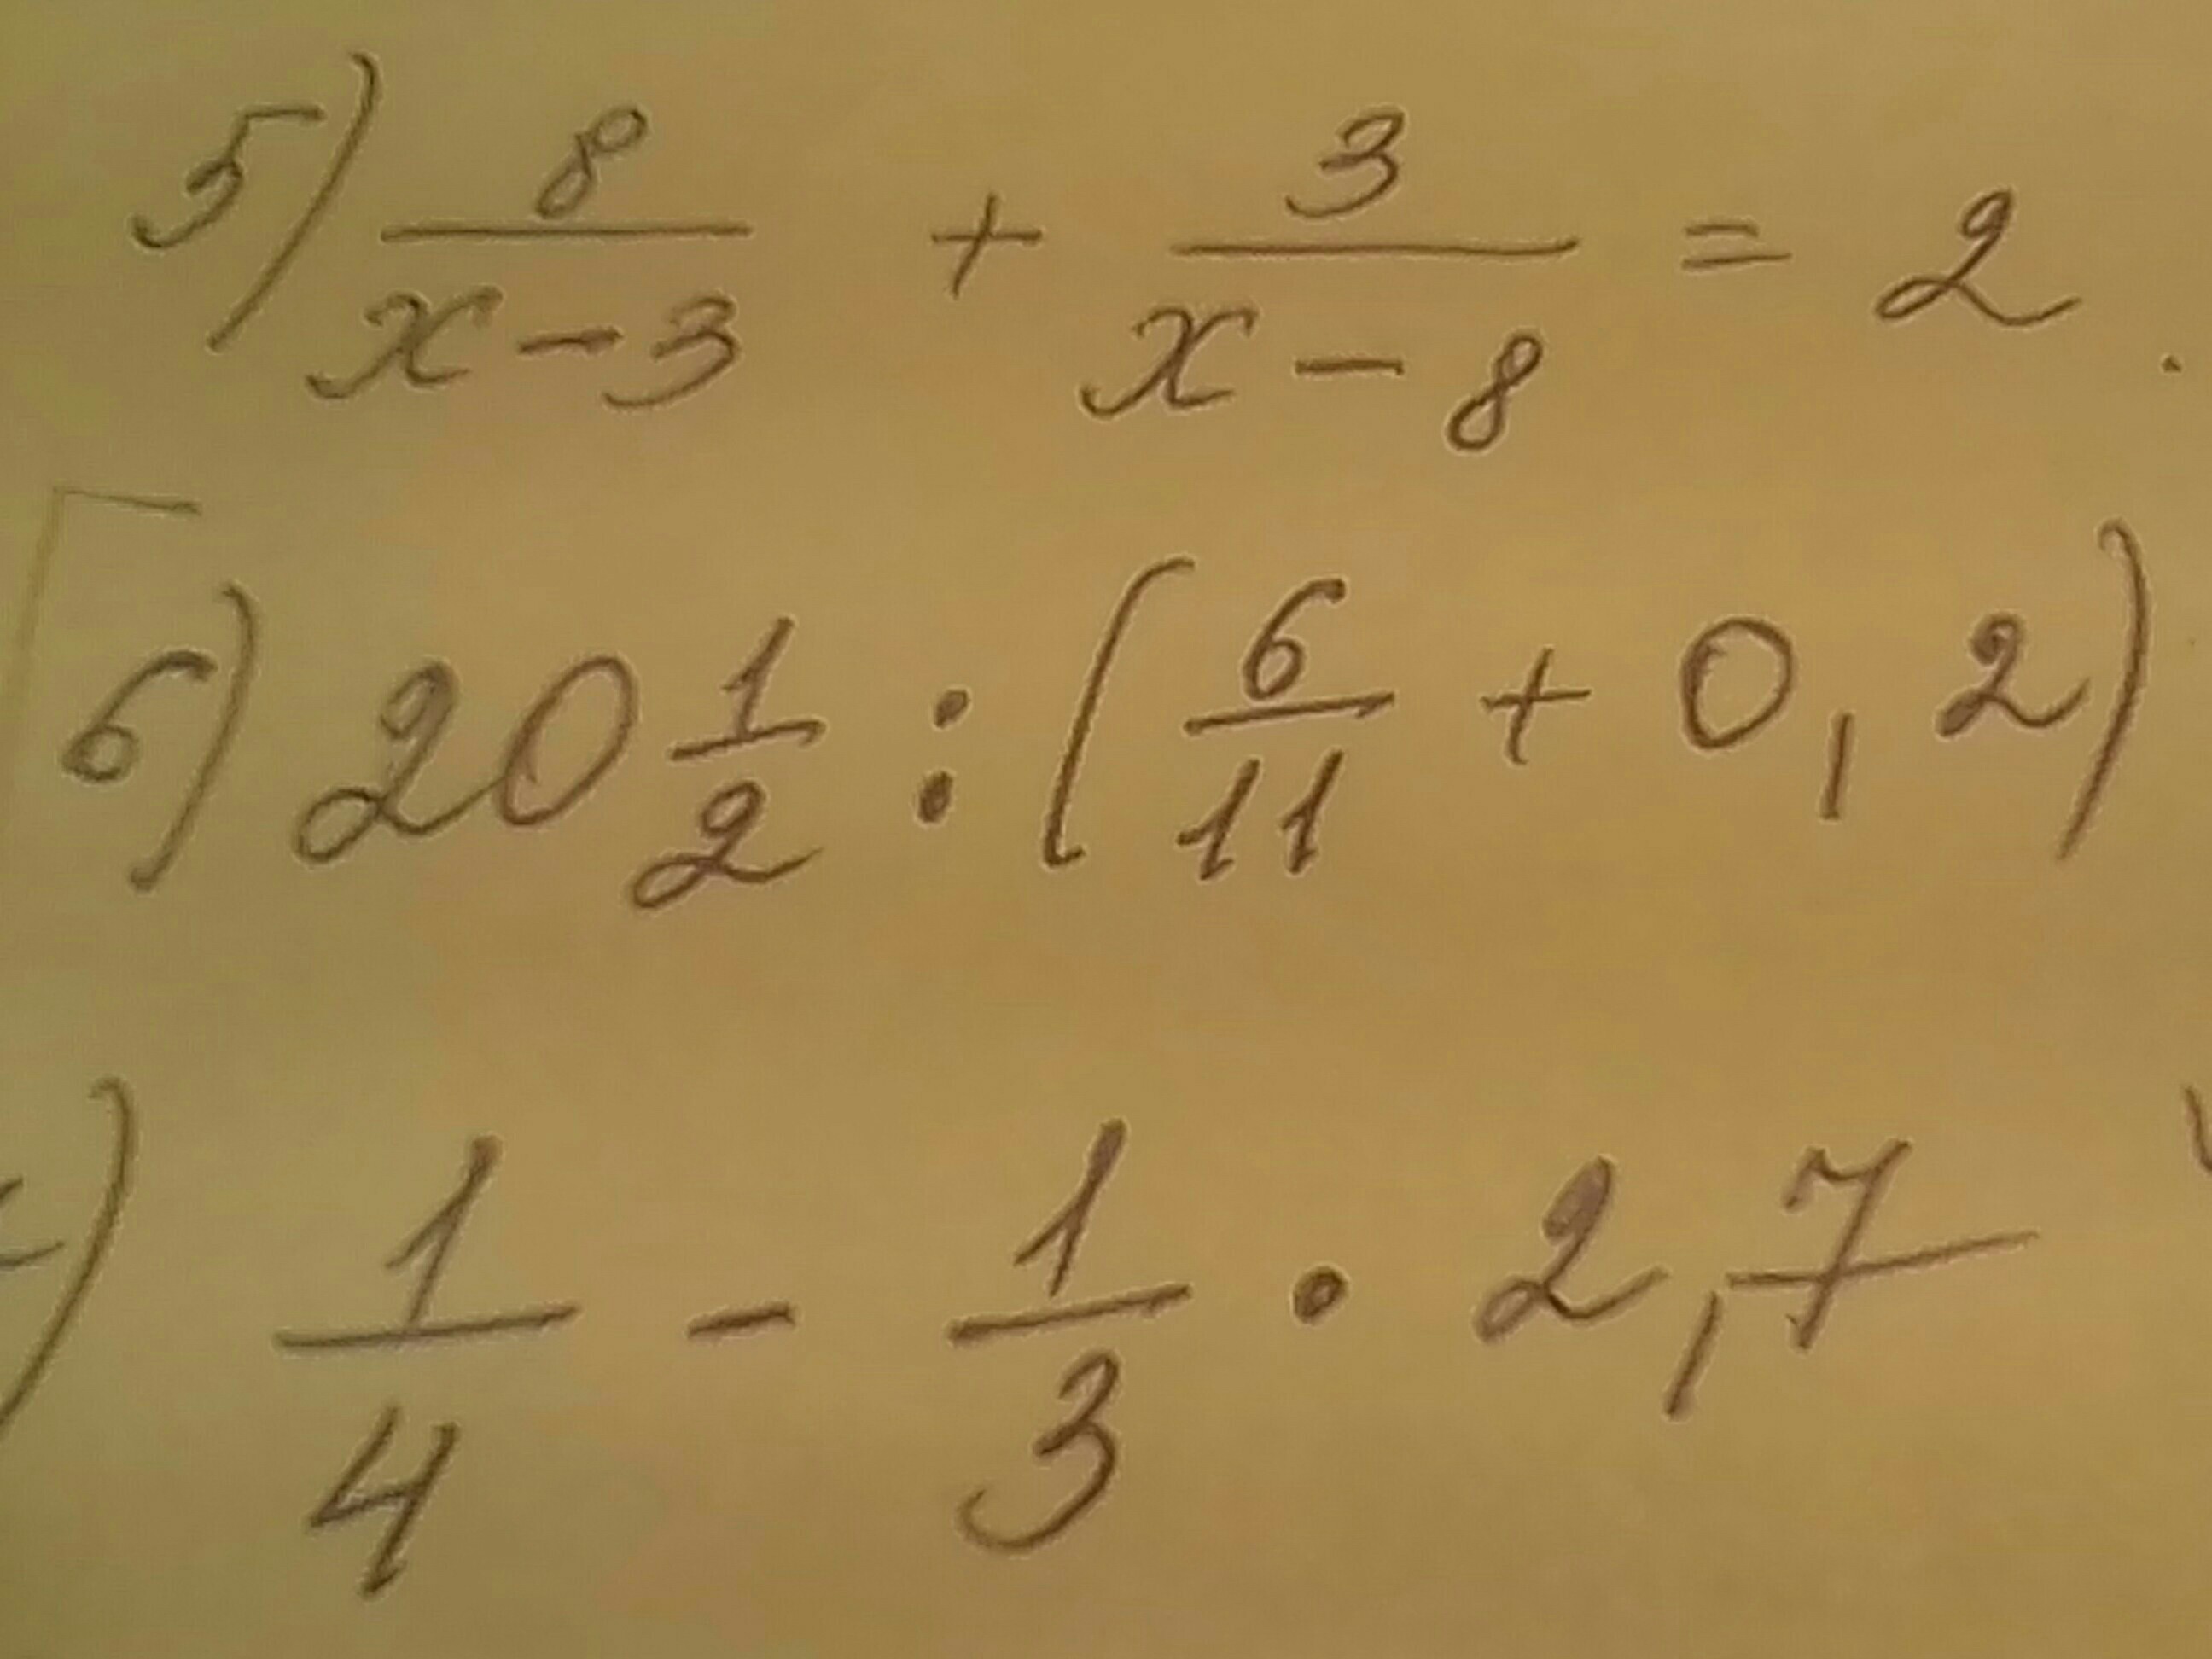 5) 8/(x-3) + 3/(x-8) = 2.
6) 20 1/2 : (6/11 + 0,2)
) 1/4 - 1/3 · 2,7